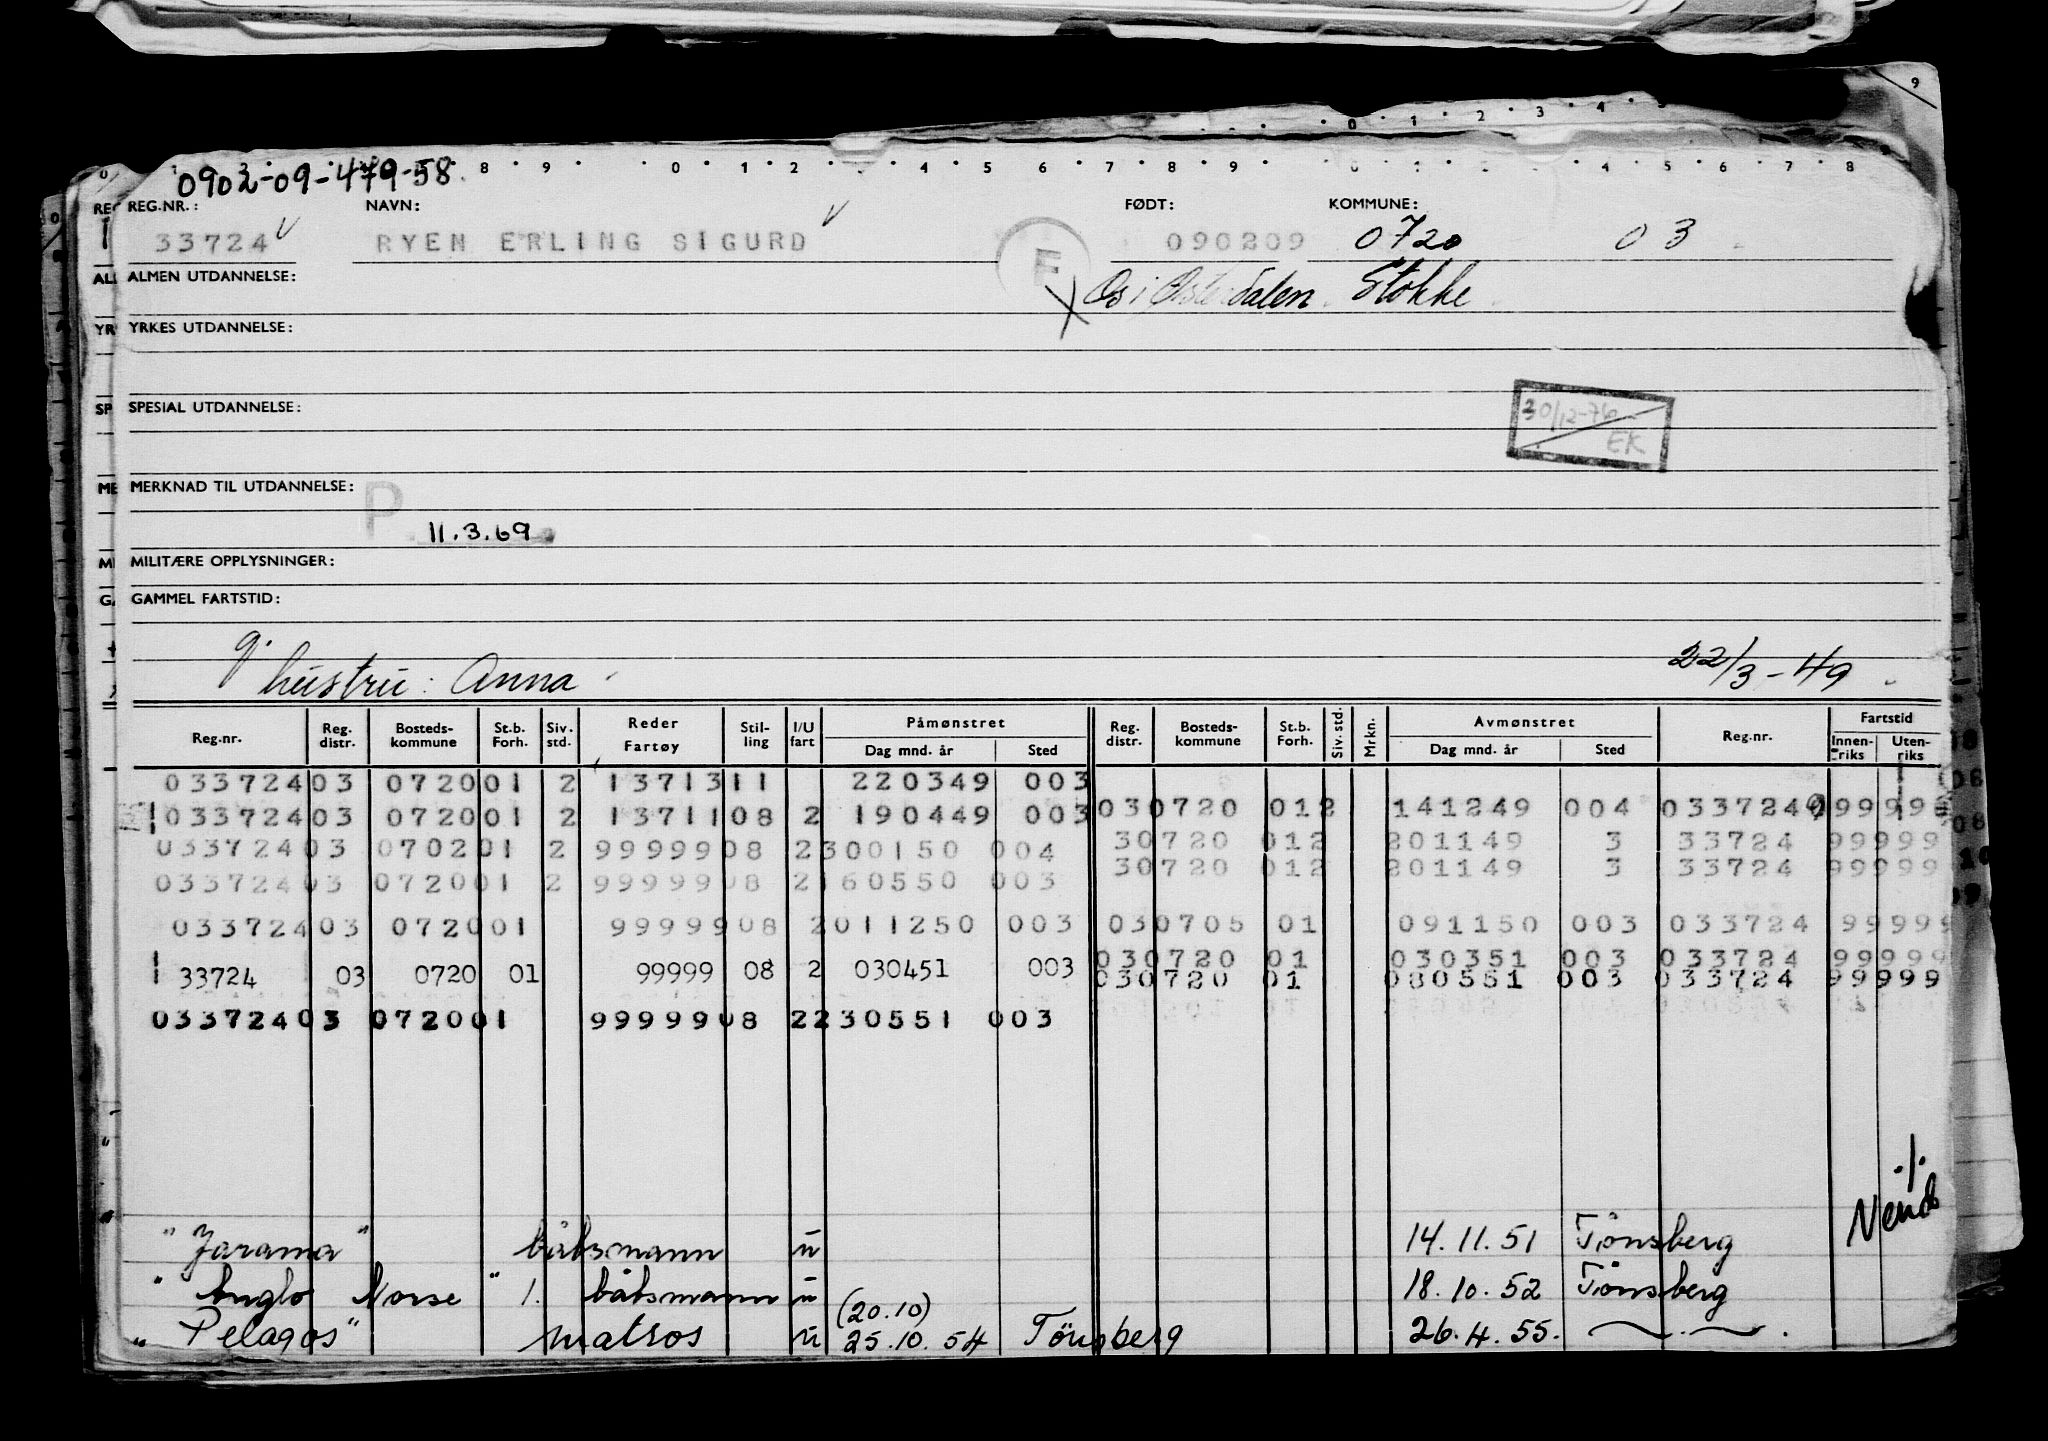 9
0 1 2 3 4
8 9 0 1 2 4 5 6 7 8 9 4 5 6 7 8
0902-09-479-58
REG.NR.: NAVN: FØDT: KOMMUNE:
33724 RYEN ERLING SIGURD F 090209 0720 03
ALMEN UTDANNELSE: Os i Østerdalen. Stokke
YRKES UTDANNELSE:
SPESIAL UTDANNELSE: 30/12-76
EK
MERKNAD TIL UTDANNELSE: P
11.3.69
MILITÆRE OPPLYSNINGER:
GAMMEL FARTSTID:
g. hustru: Anna 22/3-49
Reg.nr. Reg. distr. Bosteds-kommune St.b. Forh. Siv. std. Reder Fartøy Stil-ling I/U fart Påmønstret Dag mnd. år Sted Reg. distr. Bosteds-kommune St.b. Forh. Siv. std. Mrkn. Avmønstret Dag mnd. år Sted Reg.nr. Fartstid Innen-riks Uten-riks
033724 03 0720 01 2 1371311 220349 003
033724 03 0720 01 2 13711 08 2 190449 003 03 0720 012 141249 004 033724 99999
033724 03 0702 01 2 99999 08 2 300150 004 3 0720 012 201149 3 33724 99999
033724 03 0720 01 2 99999 08 2 160550 003 3 0720 012 201149 3 33724 99999
033724 03 0720 01 99999 08 2 011250 003 03 0705 01 091150 003 033724 99999
03 0720 01 030351 003 033724 99999
33724 03 0720 01 99999 08 2 030451 003 03 0720 01 080551 003 033724 99999
033724 03 0720 01 99999 08 2 230551 003
./.
Vend
"Jarama" båtsmann u 14.11.51 Tönsberg
"Anglo Norse" 1. båtsmann u 18.10.52 Tönsberg
(20.10)
"Pelagos" matros u 25.10.54 Tönsberg 26.4.55.